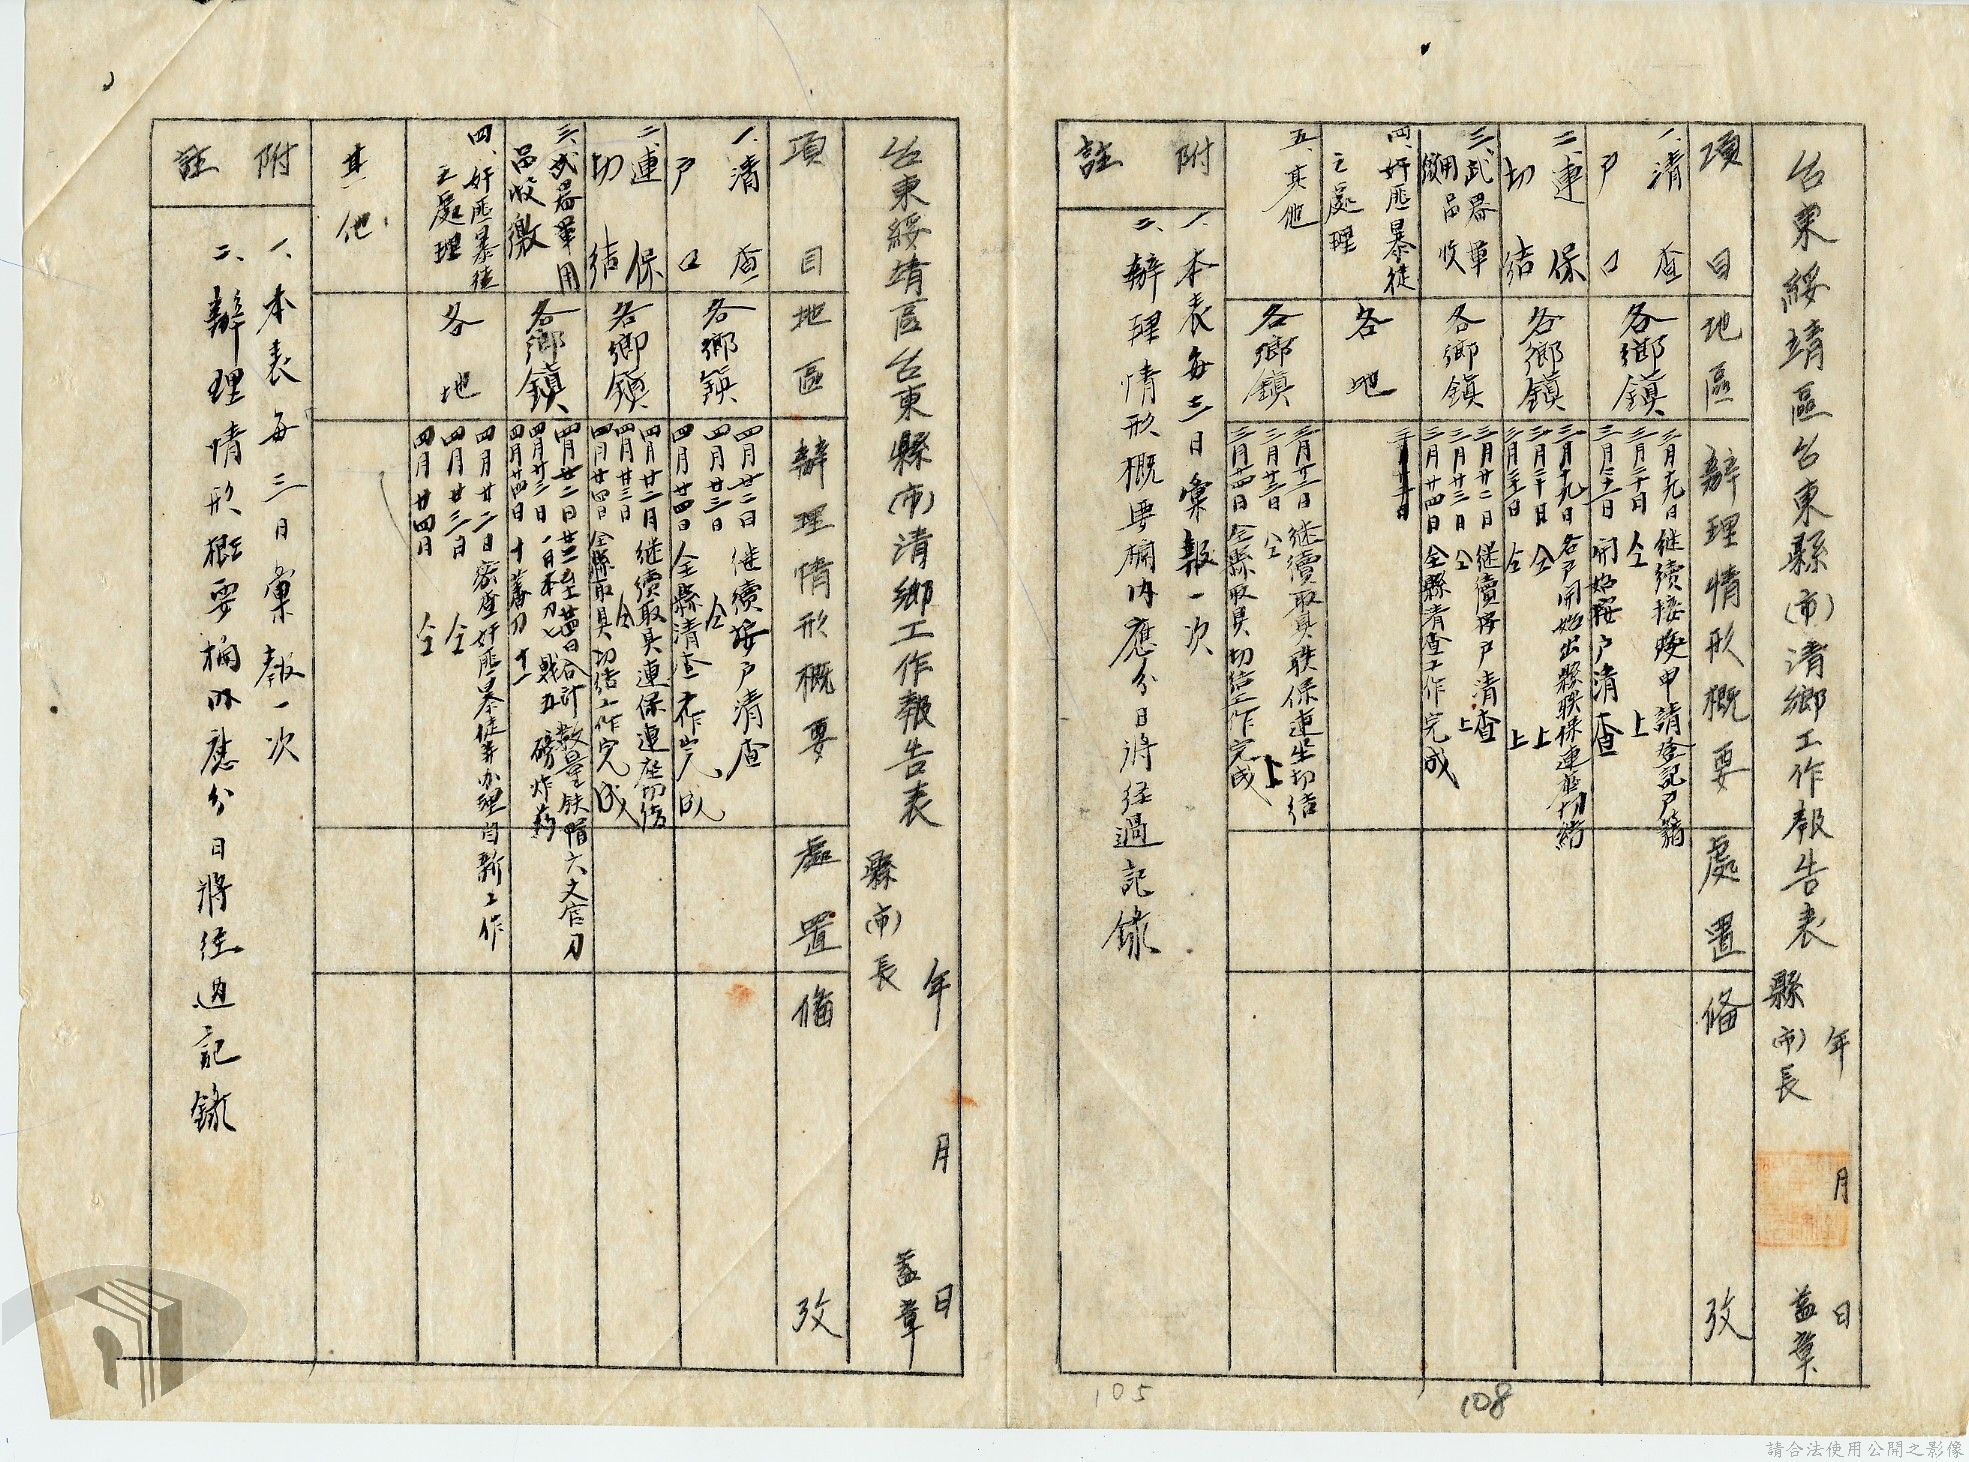 台東綏靖區台東縣(市)清鄉工作報告表 縣(市)長 蓋章
年 月 日
項目 地區 辦理情形概要 處置 備攷
一、清查戶口
各鄉鎮
三月十九日 继续接受申請登記戶籍
三月二十日 仝 上
開始按戶清查
二、連保切結
各鄉鎮
三月十九日 各戶開始出聯保連坐切結
三月二十日 仝 上
仝 上
三、武器軍用品收繳
各鄉鎮
三月廿二日 继續按戶清查
三月廿三日 仝 上
三月廿四日 全縣清查工作完成
四、奸匪暴徒之處理
各地
五、其他
各鄉鎮
三月廿二日 继續取具联保連坐切结
三月廿三日 仝 上
三月廿四日 全縣取具切结工作完成
附註
一、本表每三日彙報一次
二、辦理情形概要欄內應分日將经過記錄
105
108
台東綏靖區台東縣(市)清鄉工作報告表
縣(市)長 蓋章
年 月 日
項目 地區 辦理情形概要 處置 備攷
一、清查戶口
各鄉鎮
四月廿二日 继續按戶清查
四月廿三日 仝
四月廿四日 全縣清查工作完成
二、連保切结
各鄉鎮
四月廿二日 继續取具連保連座切结
四月廿三日 仝
四月廿四日 全縣取具切结工作完成
三、武器軍用品收繳
各鄉鎮
四月廿二日 廿二至廿四日合計数量铁帽六文官刀
四月廿三日 一日本刀七戰刀五磅炸药
四月廿四日 十蕃刀十一
四、奸匪暴徒之處理
各地
四月廿二日 密查奸匪暴徒并办理自新工作
四月廿三日 仝
四月廿四日 仝
其他
附註
一、本表每三日彙報一次
二、辦理情形概要欄內應分日將经過記錄
請合法使用公開之影像